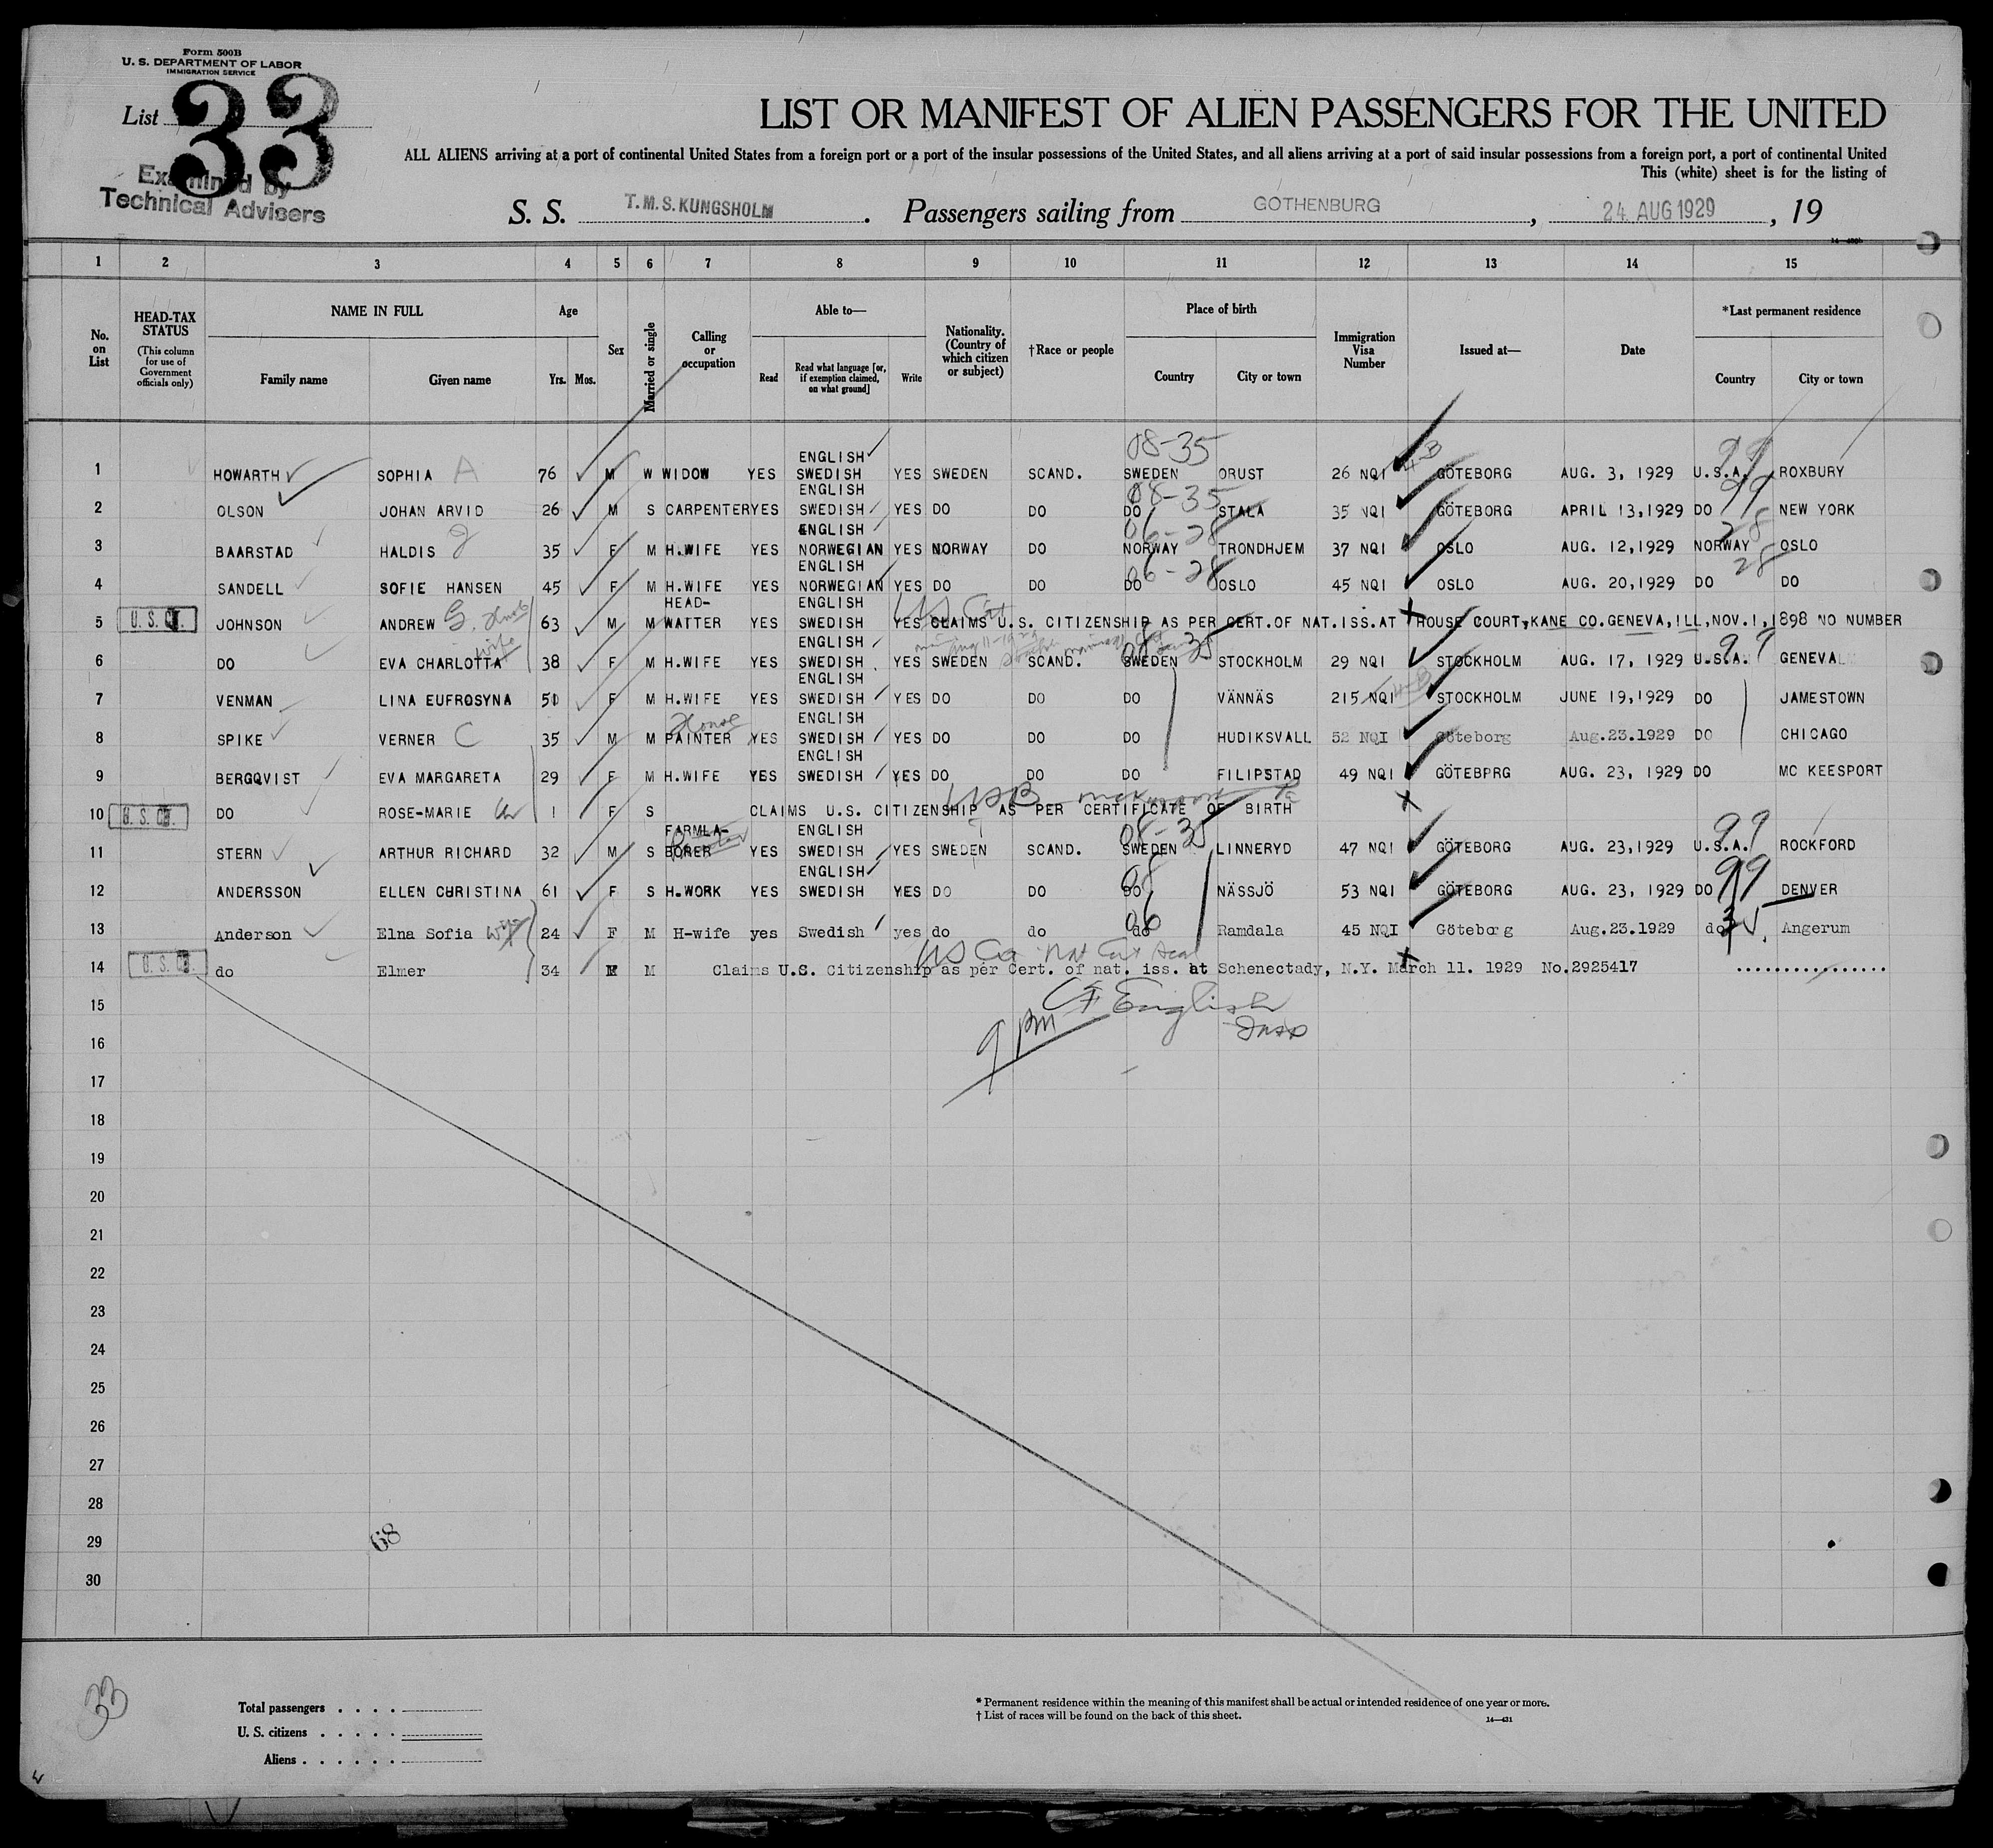 Form 500B
U. S. DEPARTMENT OF LABOR
IMMIGRATION SERVICE
List 33
Examined by
Technical Advisers
LIST OR MANIFEST OF ALIEN PASSENGERS FOR THE UNITED
ALL ALIENS arriving at a port of continental United States from a foreign port or a port of the insular possessions of the United States, and all aliens arriving at a port of said insular possessions from a foreign port, a port of continental United
This (white) sheet is for the listing of
S. S. T.M.S. KUNGSHOLM. Passengers sailing from GOTHENBURG, 24 AUG 1929, 19
1 2 3 4 5 6 7 8 9 10 11 12 13 14 15
No. on List
HEAD-TAX STATUS
(This column for use of Government officials only)
NAME IN FULL
Family name Given name
Age
Yrs. Mos.
Sex
Married or single
Calling or occupation
Able to—
Read
Read what language [or, if exemption claimed, on what ground]
Write
Nationality. (Country of which citizen or subject)
†Race or people
Place of birth
Country City or town
Immigration Visa Number
Issued at—
Date
*Last permanent residence
Country City or town
08-35 99
1 HOWARTH SOPHIA A 76 M W WIDOW YES ENGLISH SWEDISH YES SWEDEN SCAND. SWEDEN ORUST 26 NQI GÖTEBORG AUG. 3, 1929 U.S.A. ROXBURY
08-35 99
2 OLSON JOHAN ARVID 26 M S CARPENTER YES ENGLISH SWEDISH YES DO DO DO STALA 35 NQI GÖTEBORG APRIL 13,1929 DO NEW YORK
06-28 28
3 BAARSTAD HALDIS J 35 F M H.WIFE YES ENGLISH NORWEGIAN YES NORWAY DO NORWAY TRONDHJEM 37 NQI OSLO AUG. 12,1929 NORWAY OSLO
06-28 28
4 SANDELL SOFIE HANSEN 45 F M H.WIFE YES ENGLISH NORWEGIAN YES DO DO DO OSLO 45 NQI OSLO AUG. 20,1929 DO DO
U.S. CI.
5 JOHNSON ANDREW G. 63 M M HEAD-WATTER YES ENGLISH SWEDISH YES CLAIMS U.S. CITIZENSHIP AS PER CERT.OF NAT.ISS.AT HOUSE COURT,KANE CO.GENEVA,ILL,NOV.1,1898 NO NUMBER
wife 99
6 DO EVA CHARLOTTA 38 F M H.WIFE YES ENGLISH SWEDISH YES SWEDEN SCAND. SWEDEN STOCKHOLM 29 NQI STOCKHOLM AUG. 17, 1929 U.S.A. GENEVA
7 VENMAN LINA EUFROSYNA 50 F M H.WIFE YES ENGLISH SWEDISH YES DO DO DO VÄNNÄS 215 NQI STOCKHOLM JUNE 19,1929 DO JAMESTOWN
House
8 SPIKE VERNER C 35 M M PAINTER YES ENGLISH SWEDISH YES DO DO DO HUDIKSVALL 52 NQI Göteborg Aug.23.1929 DO CHICAGO
9 BERGQVIST EVA MARGARETA 29 F M H.WIFE YES ENGLISH SWEDISH YES DO DO DO FILIPSTAD 49 NQI GÖTEBPRG AUG. 23, 1929 DO MC KEESPORT
U.S. CI. USB
10 DO ROSE-MARIE 1 F S CLAIMS U.S. CITIZENSHIP AS PER CERTIFICATE OF BIRTH
08-35 99
11 STERN ARTHUR RICHARD 32 M S FARMLA-BORER YES ENGLISH SWEDISH YES SWEDEN SCAND. SWEDEN LINNERYD 47 NQI GÖTEBORG AUG. 23,1929 U.S.A. ROCKFORD
08 99
12 ANDERSSON ELLEN CHRISTINA 61 F S H.WORK YES ENGLISH SWEDISH YES DO DO DO NÄSSJÖ 53 NQI GÖTEBORG AUG. 23, 1929 DO DENVER
06
13 Anderson Elna Sofia wife 24 F M H-wife yes Swedish yes do do do Ramdala 45 NQI Göteborg Aug.23.1929 do Angerum
U.S. CI.
14 do Elmer 34 M M Claims U.S. Citizenship as per Cert. of nat. iss. at Schenectady, N.Y. March 11. 1929 No.2925417
15 English
9 pm Insp
16
17
18
19
20
21
22
23
24
25
26
27
28
29 68
30
33
Total passengers
U. S. citizens
Aliens
* Permanent residence within the meaning of this manifest shall be actual or intended residence of one year or more.
† List of races will be found on the back of this sheet.
14—431